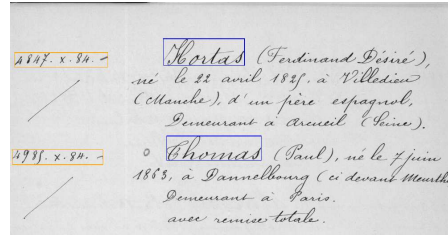 4847. x. 84. - Hortas (Ferdinand Désiré),
né le 22 avril 1825. à Villedieu
(Manche), d'un père espagnol,
Demeurant à Arcueil (Seine).
4985. x. 84. - o Thomas (Paul), né le 7 juin
1863, à Dannelbourg (ci devant Meurthe
Demeurant à Paris.
avec remise totale.